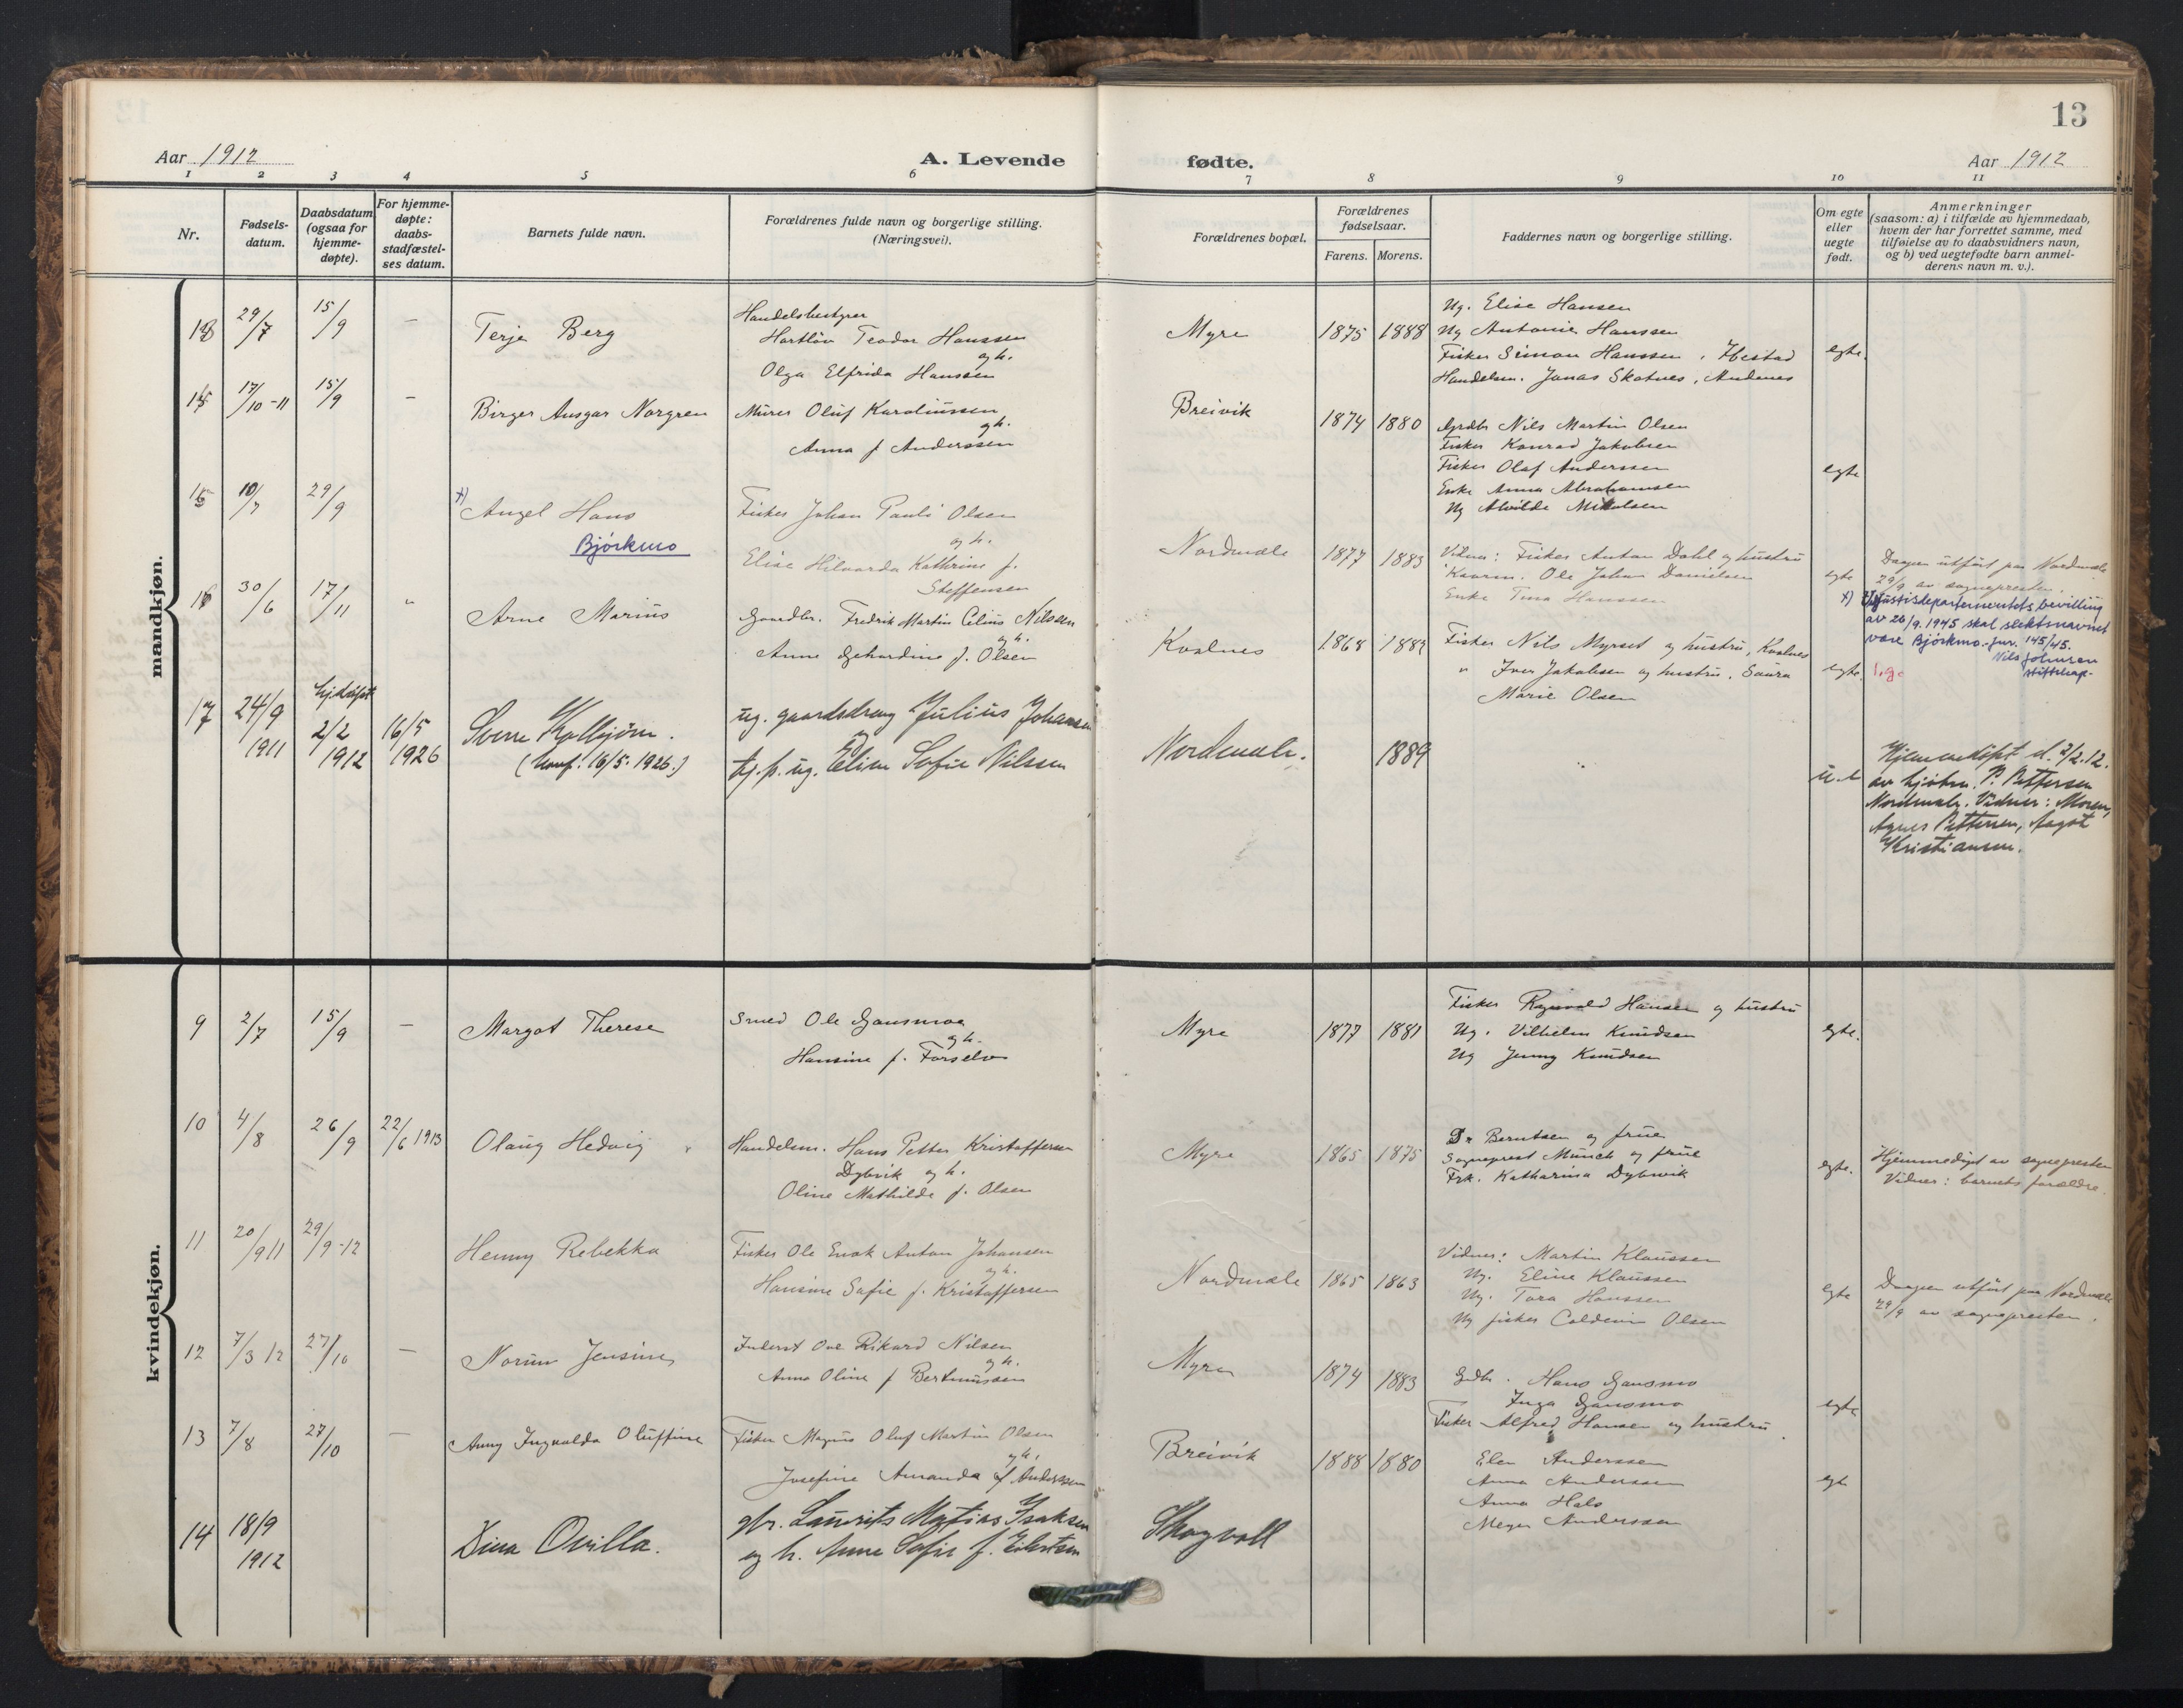 13
Aar 1912
A. Levende
fødte.
Aar 1912
1 2 3 4 5 6 7 8 9 10 11
Nr.
Fødsels-
datum.
Daabsdatum
(ogsaa for
hjemme-
døpte).
For hjemme-
døpte:
daabs-
stadfæstel-
ses datum.
Barnets fulde navn.
Forældrenes fulde navn og borgerlige stilling.
(Næringsvei).
Forældrenes bopæl.
Forældrenes
fødselsaar.
Farens. Morens.
Faddernes navn og borgerlige stilling.
Om egte
eller
uegte
født.
Anmerkninger
(saasom: a) i tilfælde av hjemmedaab,
hvem der har forrettet samme, med
tilføielse av to daabsvidners navn,
og b) ved uegtefødte barn anmel-
derens navn m. v.).
mandkjøn.
29/7 15/9 –
Terje Berg
Handelsbestyrer
Teodor Hanssen
og h.
Olga Elfrida Hanssen
Myre
1875 1888
Ug. Elise Hansen
Ug Antonie Hanssen
Fisker Simon Hanssen, Ibestad
Handelsm. Jonas Skatnes, Andenes
egte.
17/10-11 15/9 –
Birger Ansgar Norgren
Murer Oluf Karoliussen
og h.
Anna f Anderssen
Breivik
1874 1880
Grdbr Nils Martin Olsen
Fisker Konrad Jakobsen
Fisker Olaf Anderssen
Enke Anna Abrahamsen
Ug Alvilde Mikalsen
egte
10/7 29/9
x) Angel Hans
Bjørkmo
Fisker Johan Pauli Olsen
og h.
Elise Hilvarda Kathrine f.
Steffensen
Nordmele
1877 1883
Vidner: Fisker Anton Dahl og hustru
Ole Johan Danielsen
Enke Tina Hanssen
egte
Daapen utført paa Nordmele
29/9 av sognepresten.
x) Justisdepartementets bevilling
av 26/9. 1945 skal slektsnavnet
være Bjørkmo. Jnr. 145/45.
Nils Johnsen
30/6 17/11 "
Arne Marius
Gaardbr. Fredrik Martin Celius Nilssen
og h.
Anne Gehardine f. Olsen
Kvalnes
1868
Fisker Nils Myrset og hustru, Kvalnes
" Iver Jakobsen og hustru, Saura
Marie Olsen
egte.
17
24/9
1911
hjdøpt
2/2
1912
16/5
1926
Sverre Kolbjørn.
(konf. 16/5. 1926.)
ug. gaardsdreng Julius Johansen
tj.p. ug. Elise Sofie Nilssen
Nordmele.
1889
u.e
Hjemmedøpt d. 2/2.12.
av P. Pettersen
Nordmele. Vidner: Moren,
Agnes Pettersen, Aagot
Kristiansen.
kvindekjøn.
9 2/7 15/9 –
Margot Therese
Smed Ole Gausmoe
og h.
Hansine f. Forselv
Myre
1877 1881
Fisker Ragnvald Hansen og hustru
Ug. Vilhelm Knudsen
Ug Jenny Knudsen
egte.
10 4/8 26/9 22/6 1913
Olaug Hedvig
Handelsm. Hans Petter Kristoffersen
Dybvik og h.
Oline Mathilde f. Olsen
Myre
1865 1875
Dr Berntsen og frue
Sogneprest Münch og frue
Frk. Katharina Dybwik
egte.
Hjemmedøpt av sognepresten
Vidner: barnets forældre.
11 20/9 11 29/9-12
Henny Rebekka
Fisker Ole Enok Anton Johansen
og h.
Hansine Sofie f. Kristoffersen
Nordmele
1865 1863
Vidner: Martin Klaussen
Ug. Eline Klaussen
Ug. Tora Hanssen
Ug fisker Olsen
egte
Daapen utført paa Nordmele
29/9 av sognepresten.
12 7/3 12 27/10 –
Jensine
Inderst Ove Rikard Nilsen
og h.
Anna Oline f
Myre
1874 1883
Gdbr. Hans Gausmo
Inga Gausmo
Fisker Alfred Hansen og hustru.
egte
13 7/8 27/10 –
Anny Ingvalda Oluffine
Fisker Magnus Oluf Martin Olsen
og h.
Josefine Amanda f Anderssen
Breivik
1888 1880
Elen Anderssen
Anna Anderssen
Anna Hals
Meyer Anderssen
egte
14
18/9
1912
Dina Ovilla.
gbr. Laurits Matias Isaksen
og h. Anne Sofie f.
Skogvoll